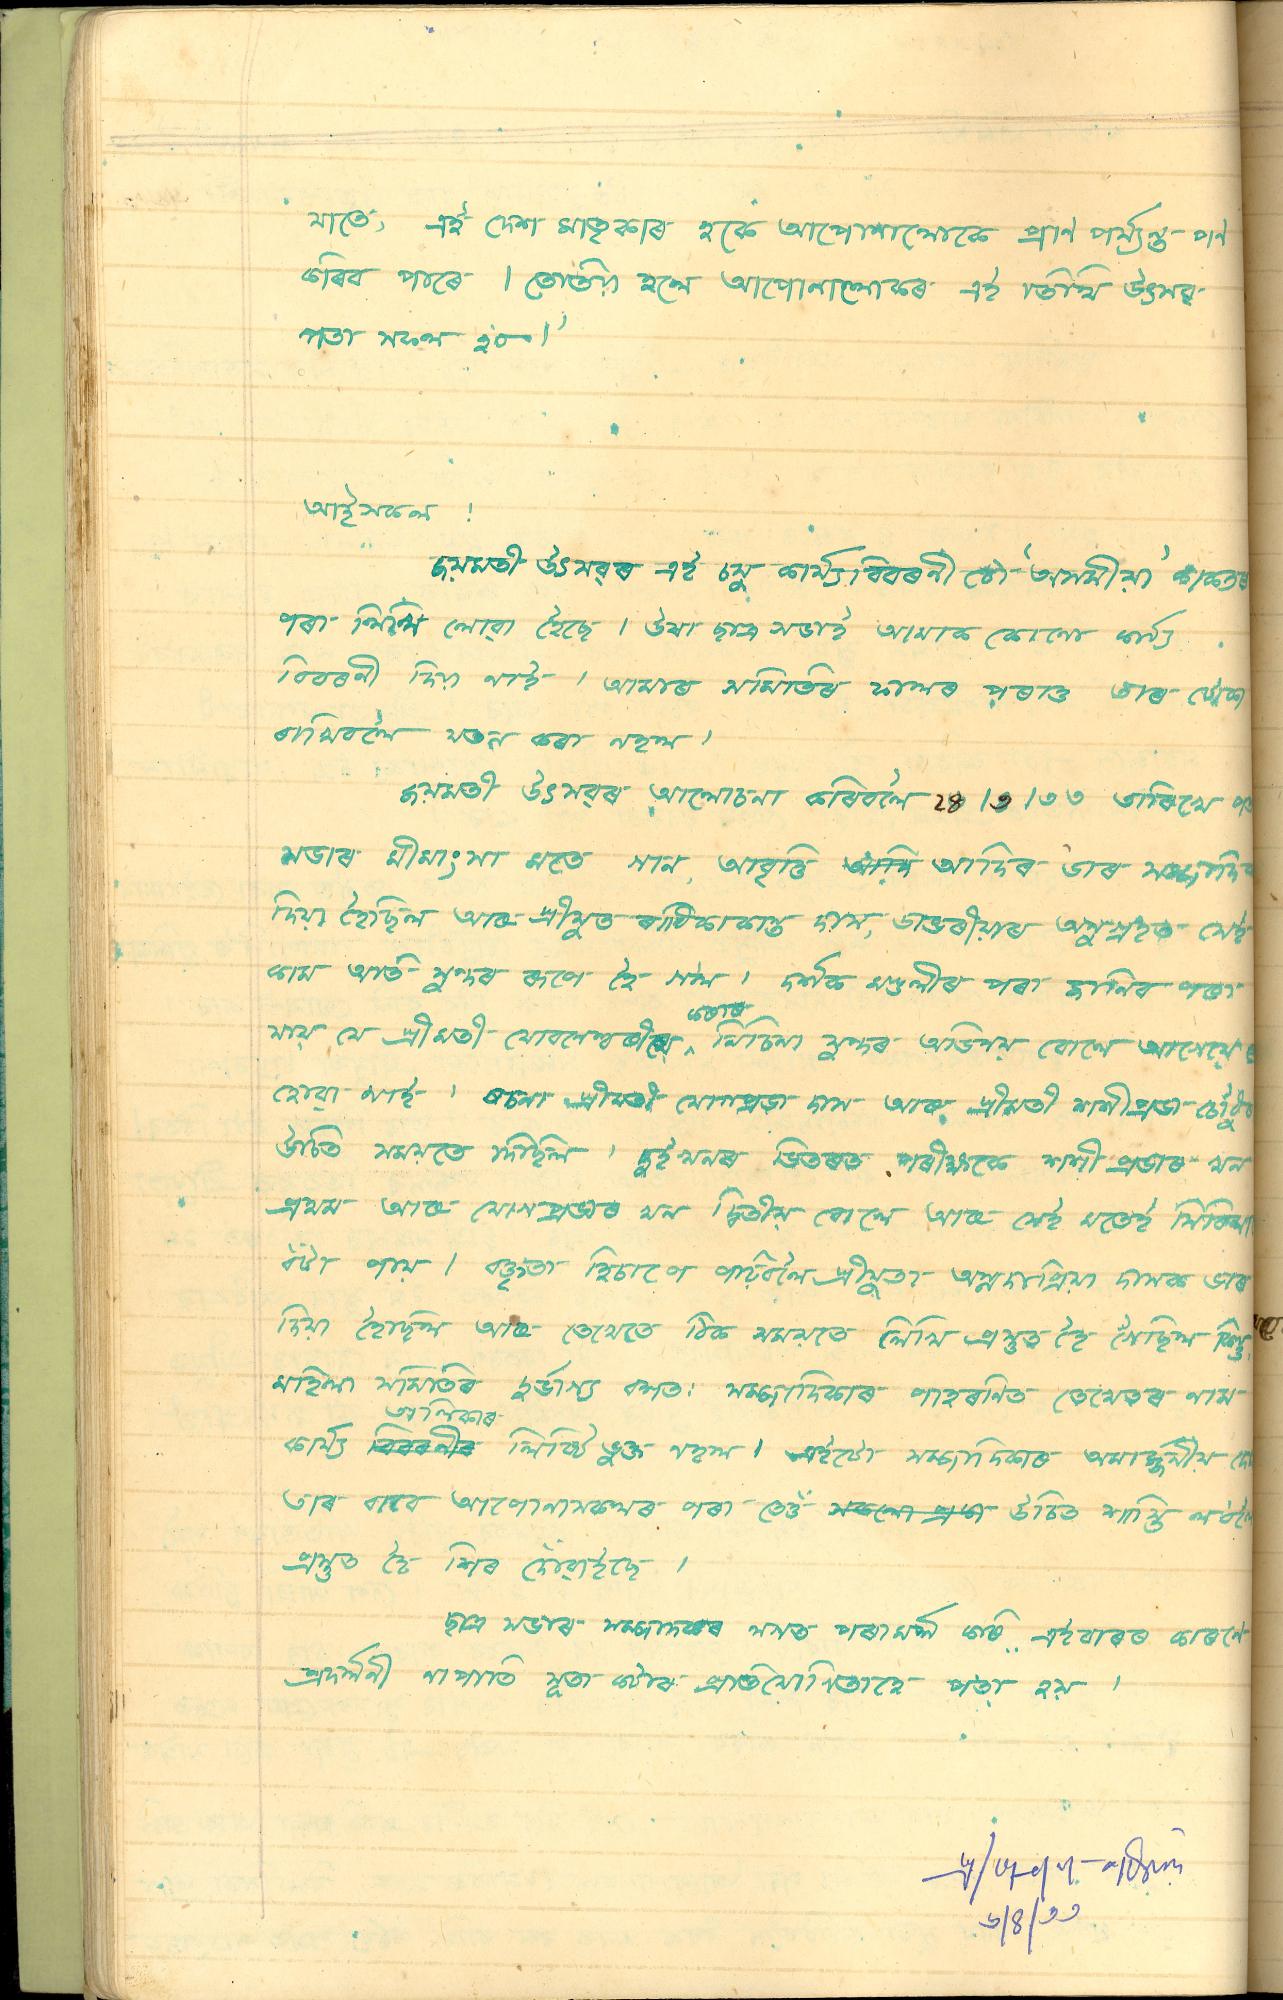 যাতে, এই দেশ মাতৃকাৰ হকে আপোনালোকে প্ৰাণ পৰ্য্যন্ত পন
কৰিব পাৰে । তেতিয়া হলে আপোনালোকৰ এই তিথি উৎসৱ
পতা সফল হব ।'
আইসকল !
জয়মতী উৎসৱৰ এই চমু কাৰ্য্যবিবৰনী টো 'অসমীয়া' কাকতৰ
পৰা লিখি লোৱা হৈছে । উষা ছাত্ৰ সভাই আমাক কোনো কাৰ্য্য
বিবৰনী দিয়া নাই । আমাৰ সমিতিৰ ফালৰ পৰাও তাৰ টোকা
ৰাখিবলৈ যতন কৰা নহল ।
জয়মতী উৎসৱৰ আলোচনা কৰিবলৈ 28/3/৩৩ তাৰিখে পতা
সভাৰ মীমাংসা মতে গান, আবৃত্তি আদিৰ ভাৰ সম্পাদিকা
দিয়া হৈছিল আৰু শ্ৰীযুত ৰাধিকাকান্ত দাস, ডাঙৰীয়াৰ অনুগ্ৰহত সেই
কাম অতি সুন্দৰ ৰূপে হৈ গল । দৰ্শক মণ্ডলীৰ পৰা জানিব পৰা
যায় যে শ্ৰীমতী ভোবনেশ্বৰীয়ে কৰোৱা সুন্দৰ অভিনয় বোলে আগেয়ে
হোৱা নাই । ৰচনা শ্ৰীমতী যোগপ্ৰভা দাস আৰু শ্ৰীমতী শশীপ্ৰভা চৌধুৰী
উচিত সময়তে দিছিল । দুইখনৰ ভিতৰত পৰীক্ষকে শশী প্ৰভাৰ খন
প্ৰথম আৰু যোগপ্ৰভাৰ খন দ্বিতীয় বোলে আৰু সেই মতেই
বঁটা পায় । বক্তৃতা হিচাপে পঢ়িবলৈ শ্ৰীযুতা অন্নদাপ্ৰিয়া দাসক ভাৰ
দিয়া হৈছিল আৰু তেখেতে ঠিক সময়তে লিখি প্ৰস্তুত হৈ গৈছিল কিন্তু
মহিলা সমিতিৰ দুৰ্ভাগ্য বশত: সম্পাদিকাৰ পাহৰনিত তেখেতৰ নাম
কাৰ্য্য তালিকাৰ লিষ্টি ভুক্ত নহল । এইটো সম্পাদিকাৰ অমাৰ্জ্জনীয় দোষ
তাৰ বাবে আপোনাসকলৰ পৰা তেওঁ উচিত শাস্তি লবলৈ
প্ৰস্তুত হৈ শিৰ দোঁৱাইছে ।
ছাত্ৰ সভাৰ সম্পাদকৰ লগত পৰামৰ্শ কৰি এইবাৰৰ কাৰণে
প্ৰদৰ্শনী নাপাতি সূতা কটাৰ প্ৰতিযোগিতাহে পতা হয় ।
৬/৪/৩৩